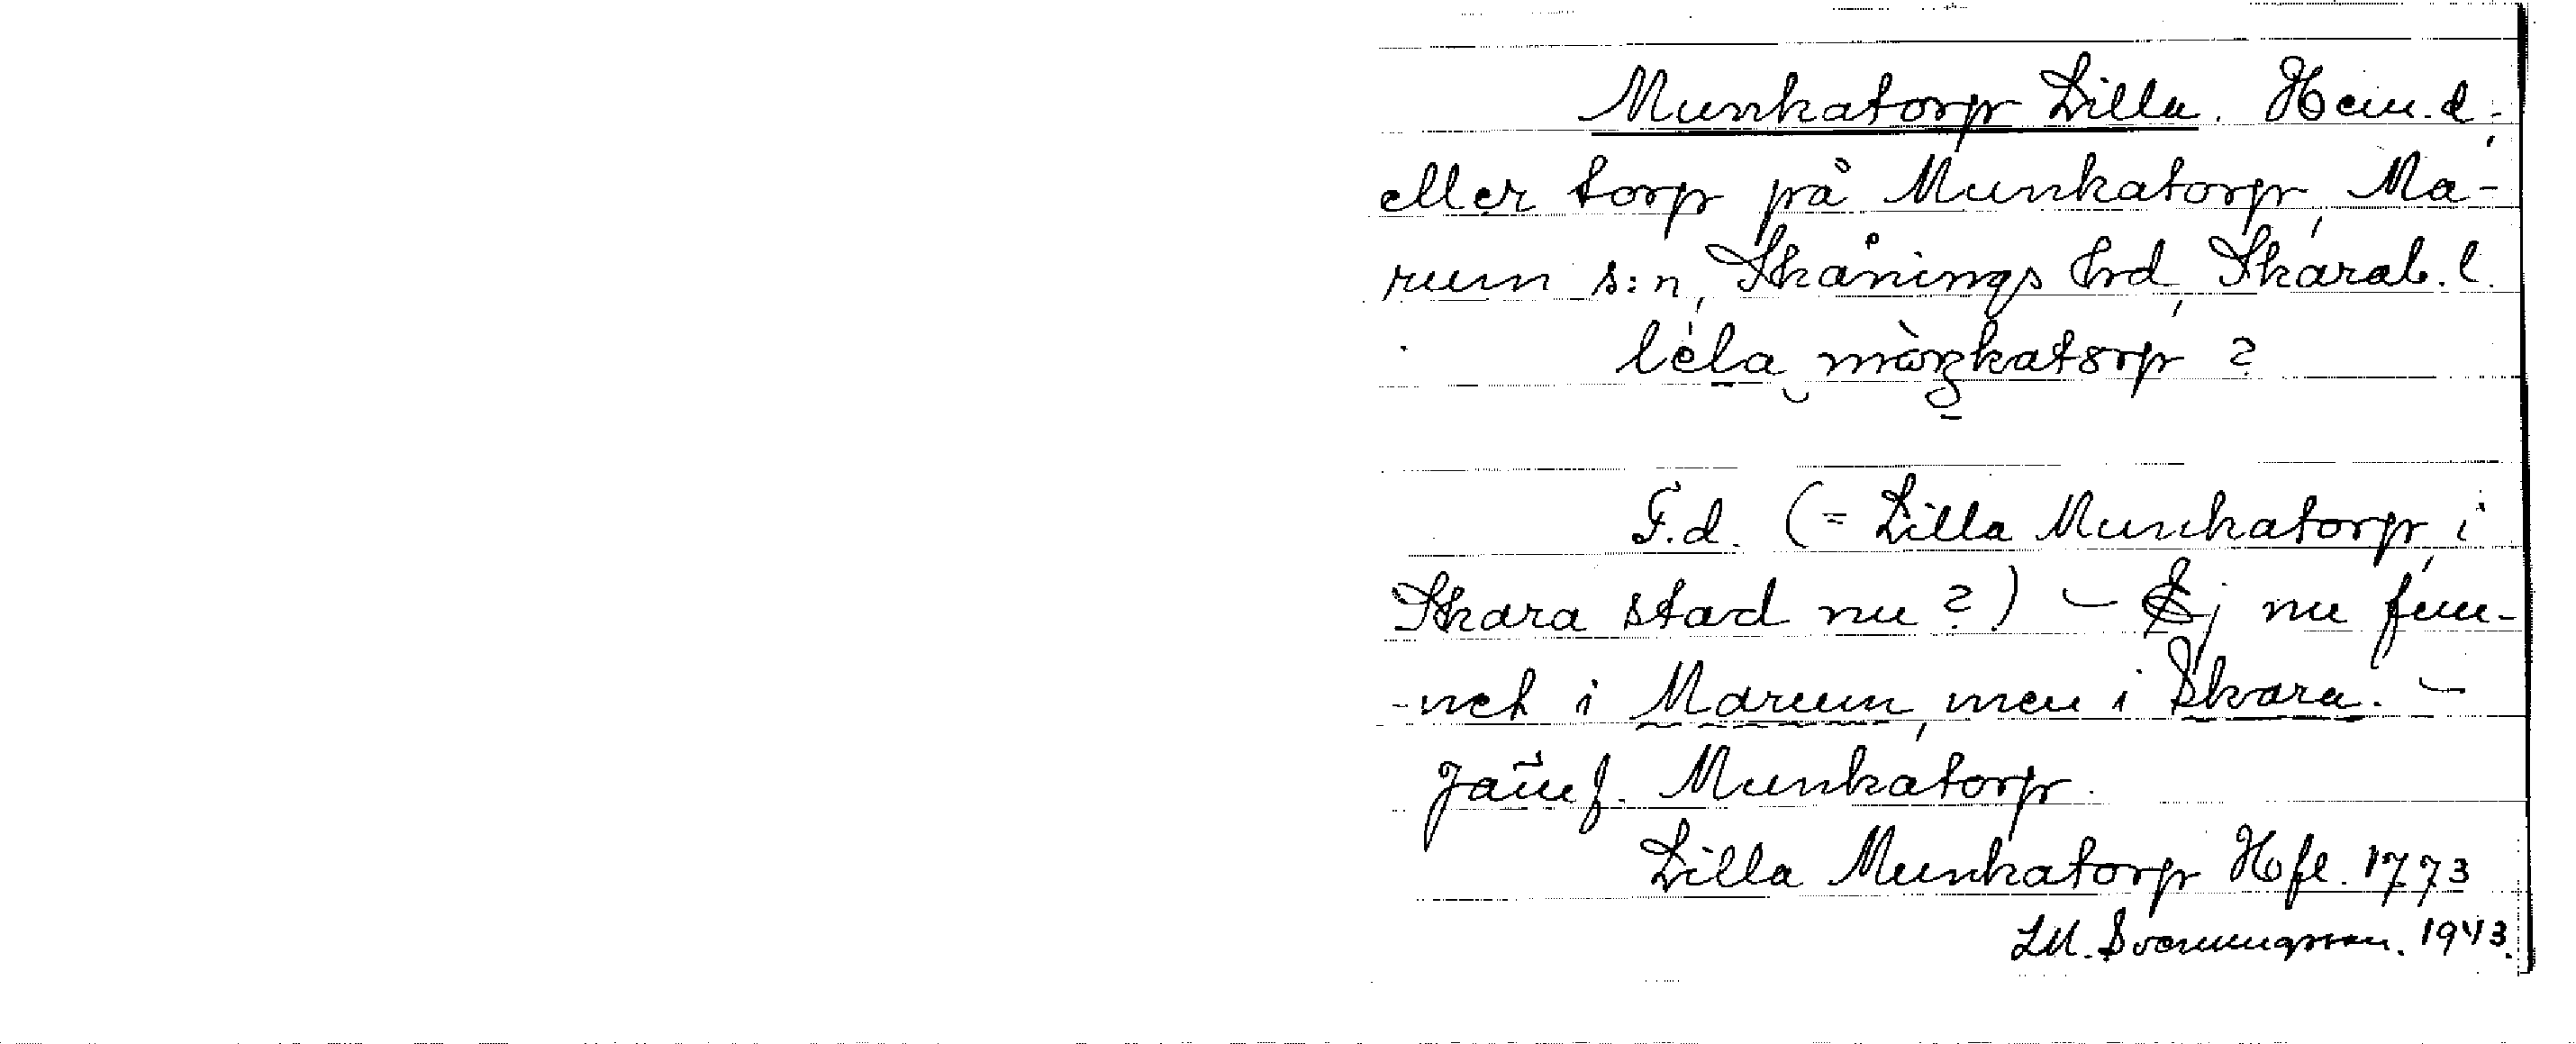 Munkatorp Lilla. Hem.d.,
eller torp på Munkatorp, Ma-
rum s:n, Skånings hd, Skarab. l.
lèla mòŋkatorp ?
F.d. (= Lilla Munkatorp, i
Skara stad nu ?) – Ej nu fun-
-net i Marum, men i Skara. –
Jämf. Munkatorp.
Lilla Munkatorp Hfl. 1773
LM. Svenningsson. 1943.